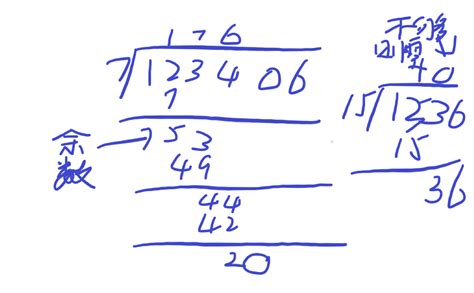 176
7 123406
7
余数 53
49
44
42
20
40
15 1236
15
36